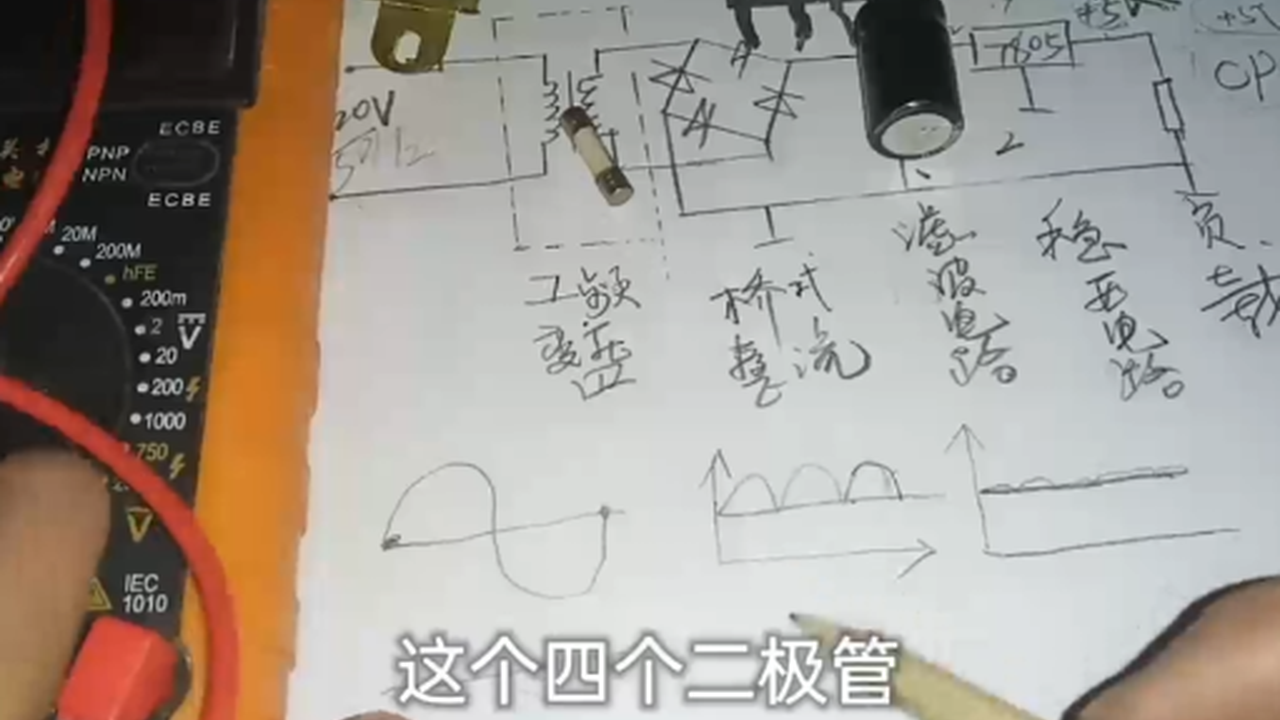 +5V
7805
20V
2
ECBE
PNP
NPN
ECBE
20M
200M
hFE
200m
2 V
20
200
1000
750
V
IEC
1010
工频
变压
桥式
整流
滤波电路
稳压电路
负载
这个四个二极管